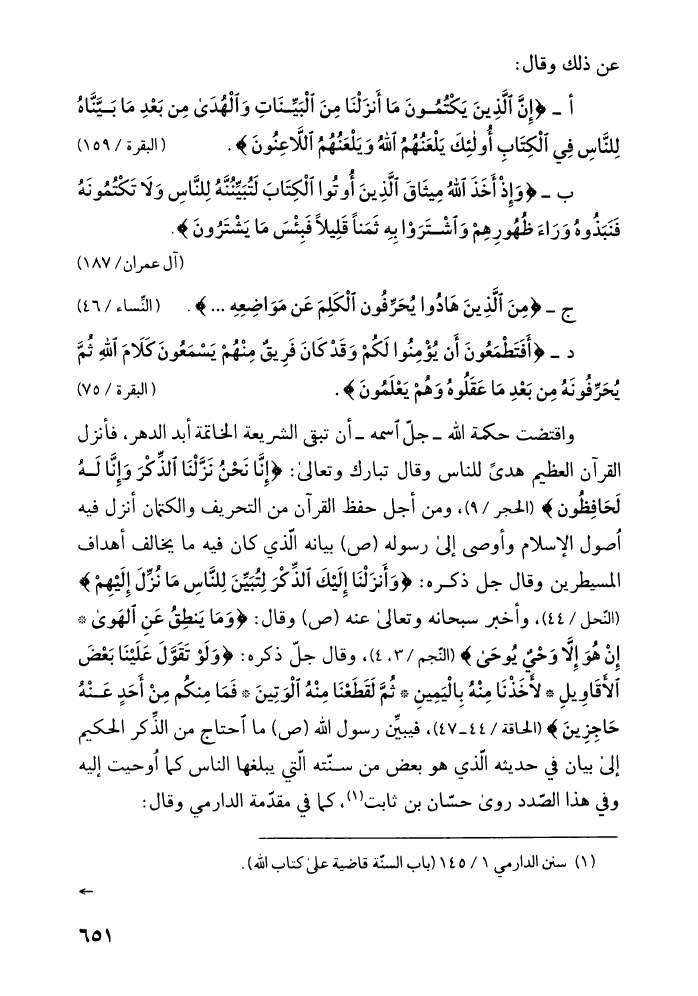 عن ذلك وقال:
أ ـ ﴿إِنَّ ٱلَّذِينَ يَكْتُمُـونَ مَا أَنزَلْنَا مِنَ ٱلْبَيِّـنَاتِ وَٱلْهُدَىٰ مِن بَعْدِ مَا بَـيَّنَّاهُ
لِلنَّاسِ فِي ٱلْكِتَابِ أُولٰئِكَ يَلْعَنُهُمُ ٱللهُ وَيَلْعَنُهُمُ ٱللَّاعِنُونَ﴾. (البقرة / ١٥٩)
ب ـ ﴿وَإِذْ أَخَذَ ٱللهُ مِيثَاقَ ٱلَّذِينَ أُوتُوا ٱلْكِتَابَ لَتُبَيِّنُنَّهُ لِلنَّاسِ وَلَا تَكْتُمُونَهُ
فَنَبَذُوهُ وَرَاءَ ظُهُورِهِمْ وَٱشْـتَرَوْا بِهِ ثَمَناً قَلِيلاً فَبِئْسَ مَا يَشْتَرُونَ﴾.
(آل عمران/ ١٨٧)
ج ـ ﴿مِنَ ٱلَّذِينَ هَادُوا يُحَرِّفُون ٱلْكَلِمَ عَن مَوَاضِعِهِ ...﴾. (النِّساء / ٤٦)
د ـ ﴿أَفَتَطْمَعُونَ أَن يُؤْمِنُوا لَكُمْ وَقَدْ كَانَ فَرِيقٌ مِنْهُمْ يَسْمَعُونَ كَلَامَ ٱللهِ ثُمَّ
يُحَرِّفُونَهُ مِن بَعْدِ مَا عَقَلُوهُ وَهُمْ يَعْلَمُونَ﴾. (البقرة / ٧٥)
واقتضت حكمة الله ـ جلّ ٱسمه ـ أن تبقى الشريعة الخاتمة أبد الدهر، فأنزل
القرآن العظيم هدىً للناس وقال تبارك وتعالىٰ: ﴿إِنَّا نَحْنُ نَزَّلْنَا ٱلذِّكْرَ وَإِنَّا لَـهُ
لَحَافِظُون﴾ (الحجر / ٩)، ومن أجل حفظ القرآن من التحريف والكتمان أنزل فيه
أُصول الإسلام وأوصى إلىٰ رسوله (ص) بيانه الّذي كان فيه ما يخالف أهداف
المسيطرين وقال جل ذكـره: ﴿وَأَنزَلْنَا إِلَيْكَ ٱلذِّكْرَ لِتُبَيِّنَ لِلنَّاسِ مَا نُزِّلَ إِلَيْهِمْ﴾
(النّحل / ٤٤)، وأخبر سبحانه وتعالىٰ عنه (ص) وقال: ﴿وَمَا يَنطِقُ عَنِ ٱلهَوىٰ *
إِنْ هُوَ إِلَّا وَحْيٌ يُوحَىٰ﴾ (النّجم / ٣، ٤)، وقال جلّ ذكره: ﴿وَلَوْ تَقَوَّلَ عَلَيْنَا بَعْضَ
ٱلأَقَاوِيلِ * لأَخَذْنَا مِنْهُ بِالْيَمِينِ * ثُمَّ لَقَطَعْنَا مِنْهُ ٱلْوَتِينَ * فَمَا مِنكُم مِنْ أَحَدٍ عَنْـهُ
حَاجِزِينَ﴾ (الحاقة / ٤٤ـ٤٧)، فيبيِّن رسول الله (ص) ما ٱحتاج من الذِّكر الحكيم
إلىٰ بيان في حديثه الّذي هو بعض من سـنّته الّتي يبلغها الناس كما أُوحيت إليه
وفي هذا الصّدد روىٰ حسّان بن ثابت(١)، كما في مقدّمة الدارمي وقال:
(١) سنن الدارمي ١ / ١٤٥ (باب السنّة قاضية علىٰ كتاب الله).
←
٦٥١